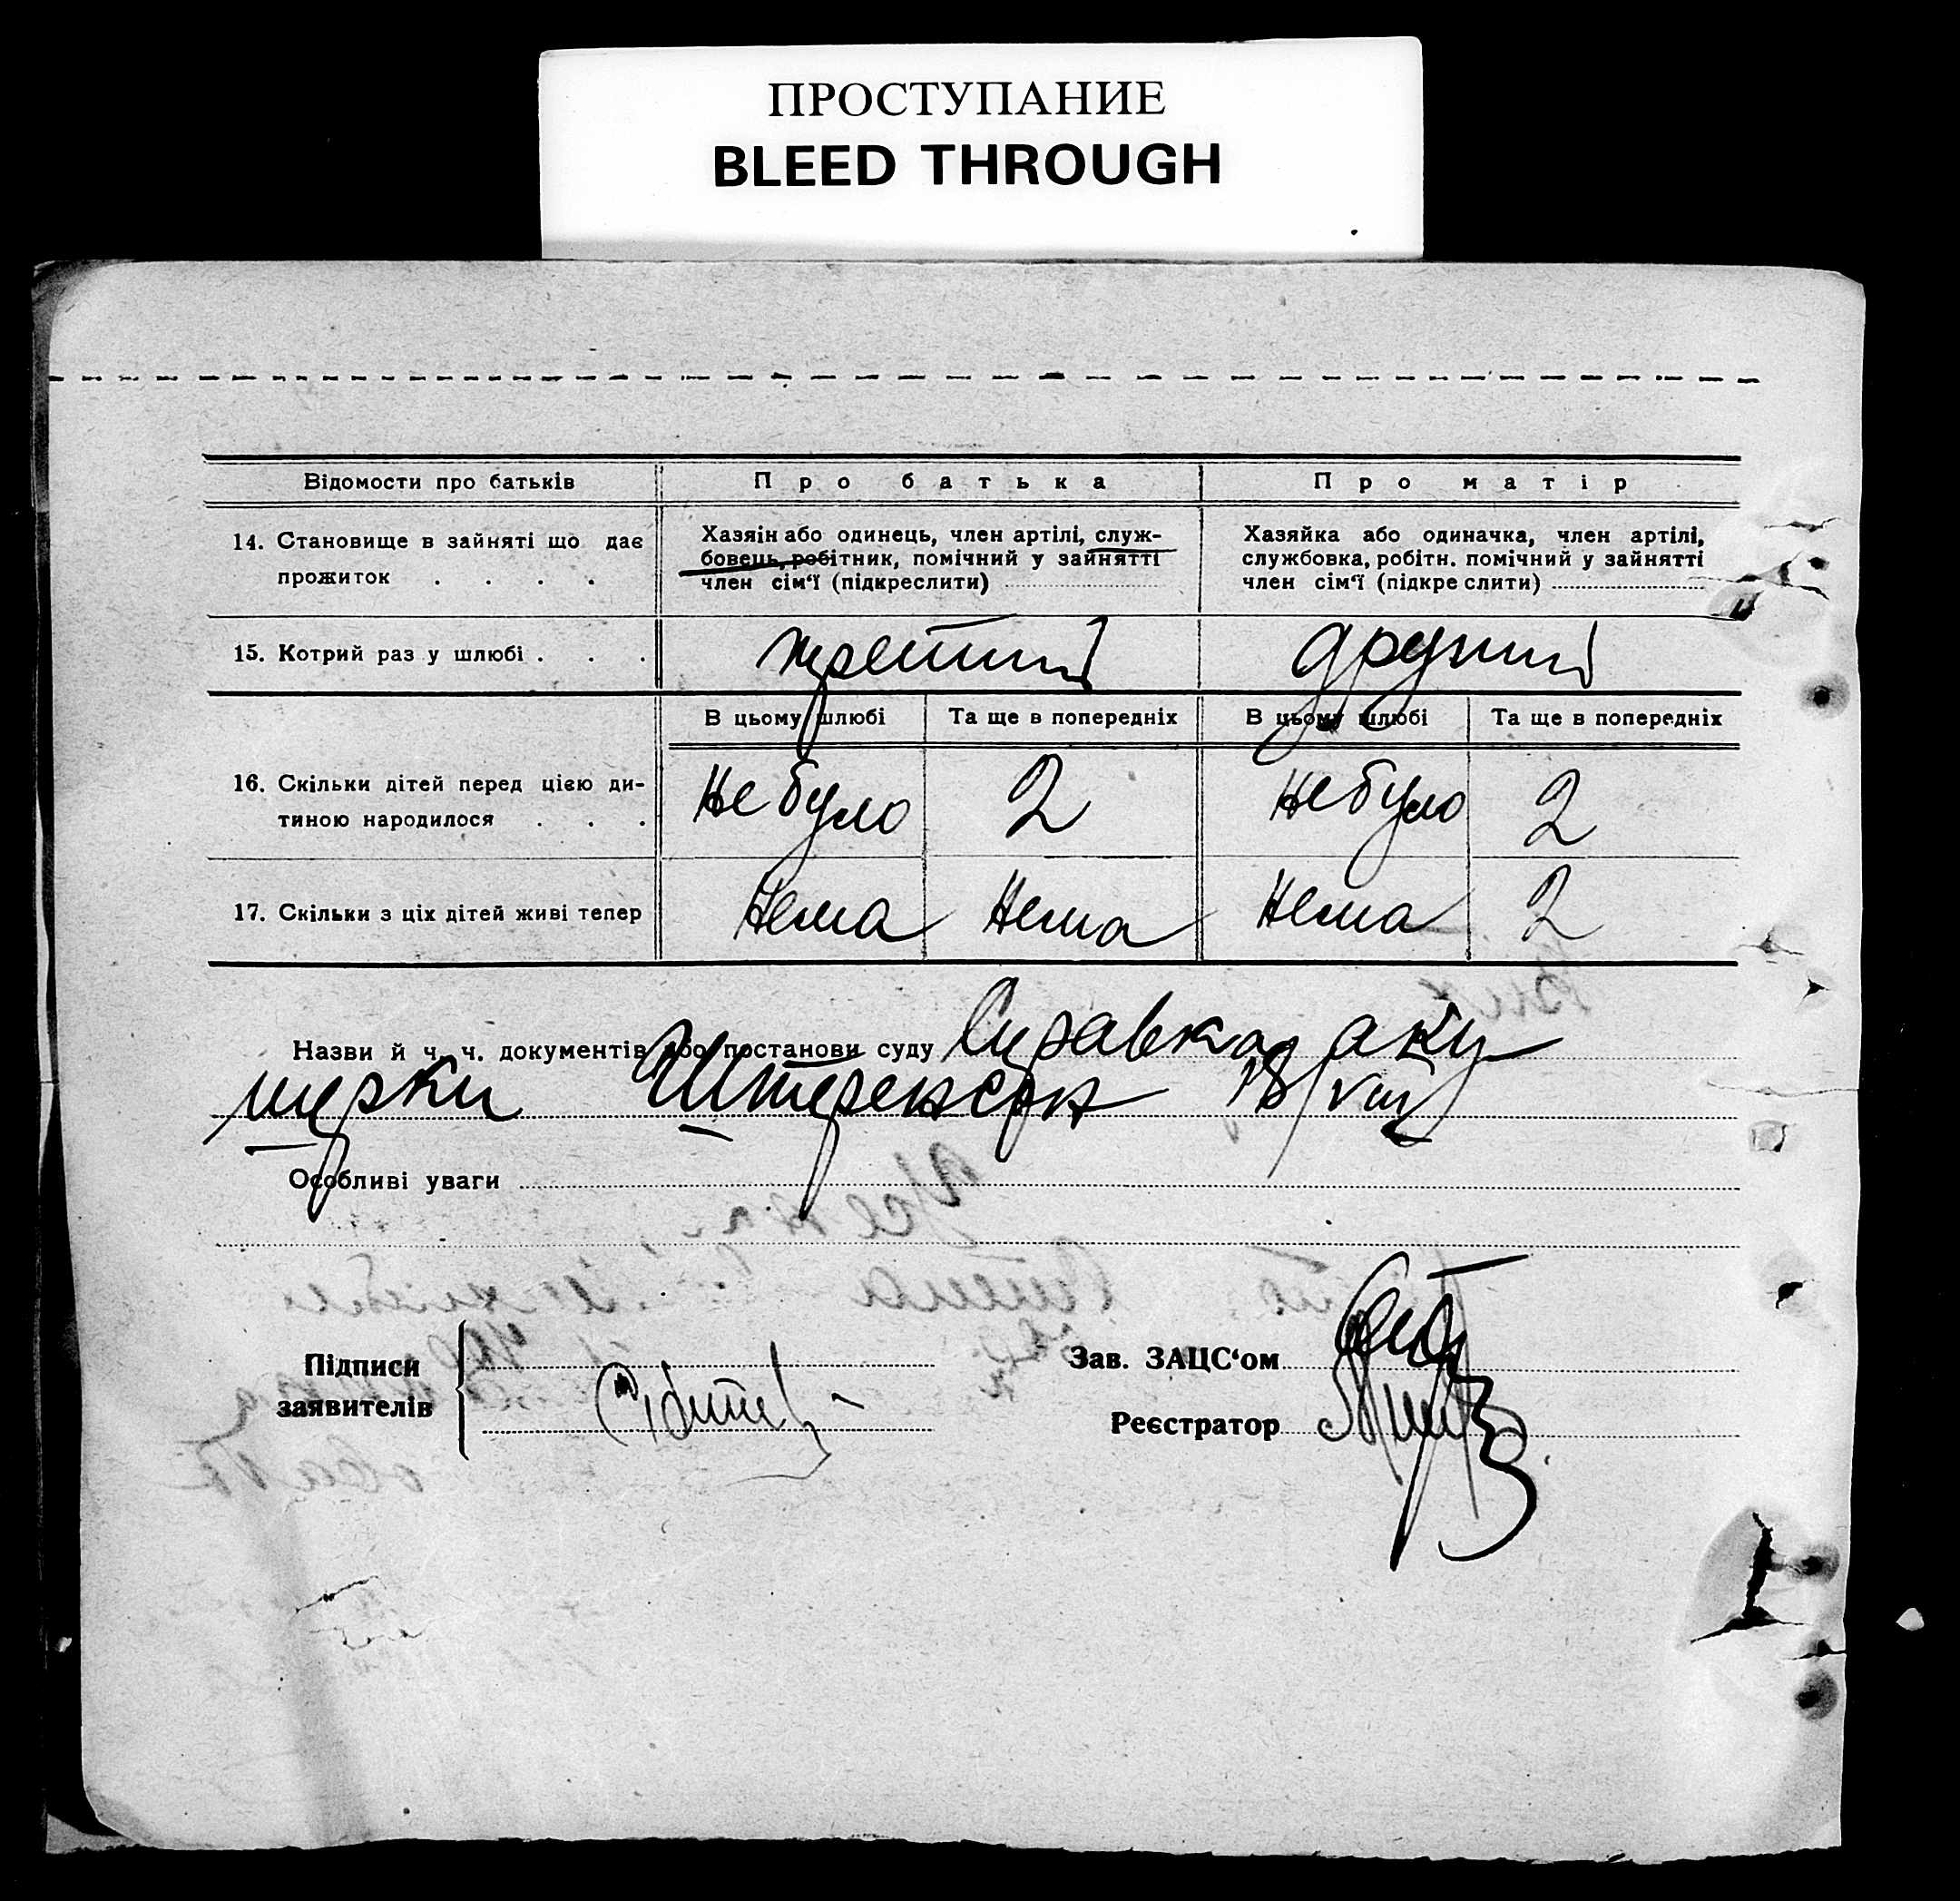 ПРОСТУПАНИЕ
BLEED THROUGH
Відомости про батьків
Про батька
Про матір
14. Становище в зайняті що дає
прожиток . . . .
Хазяін або одинець, член артілі, служ-
бовець, робітник, помічний у зайнятті
член сім‘ї (підкреслити)
Хазяйка або одиначка, член артілі,
службовка, робітн. помічний у зайнятті
член сім‘ї (підкре слити)
15. Котрий раз у шлюбі . . .
третий
другий
В цьому шлюбі
Та ще в попередніх
В цьому шлюбі
Та ще в попередніх
16. Скільки дітей перед цією ди-
тиною народилося . . .
Не було
2
Не було
2
17. Скільки з ціх дітей живі тепер
Нема
Нема
Нема
2
Назви й ч. ч. документів або постанови суду Справка аку
шерки 18/VIII
Особливі уваги
Підписи
заявителів
Зав. ЗАЦС‘ом
Реєстратор